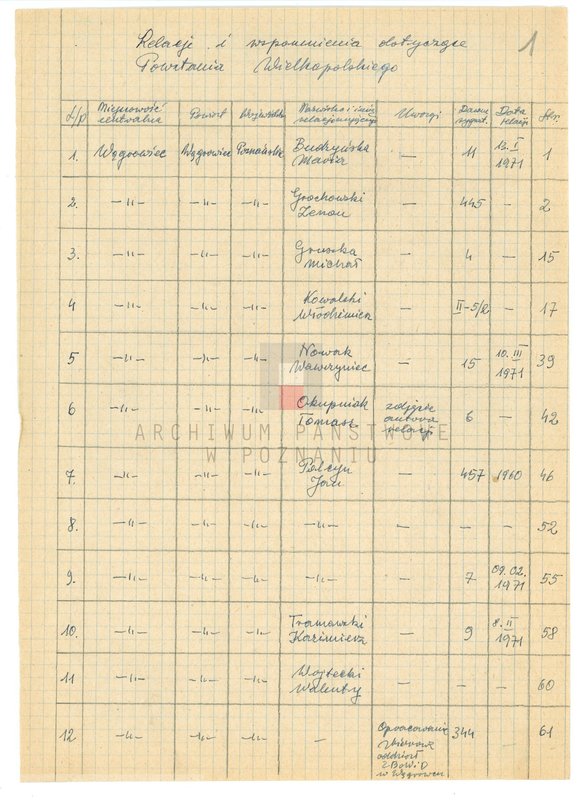 1
Relacje i wspomnienia dotyczące
Powstania Wielkopolskiego
L/p Miejscowość centralna Powiat Województwo Nazwisko i imię relacjonującego Uwagi Dawna sygnat. Data relacji Str.
1. Wągrowiec Wągrowiec Poznańskie Budzyńska Maria — 11 12.I 1971 1
2. —„— —„— —„— Grochowski Zenon — 445 — 2
3. —„— —„— —„— Gruszka Michał — 4 — 15
4 —„— —„— —„— Kowalski Włodzimierz — II-5/2 — 17
5 —„— —„— —„— Nowak Wawrzyniec — 15 10.III 1971 39
6 —„— —„— —„— Okupniak Tomasz zdjęcie autora relacji 6 — 42
ARCHIWUM PAŃSTWOWE
W POZNANIU
7. —„— —„— —„— Palczyn Jan — 457 1960 46
8. —„— —„— —„— —„— — — — 52
9. —„— —„— —„— —„— — 7 09.02. 1971 55
10. —„— —„— —„— Tramowski Kazimierz — 9 8.II 1971 58
11 —„— —„— —„— Wojtecki Walenty — — — 60
12 —„— —„— —„— — Opracowanie zbiorowe oddział ZBoWiD w Wągrowcu 344 61